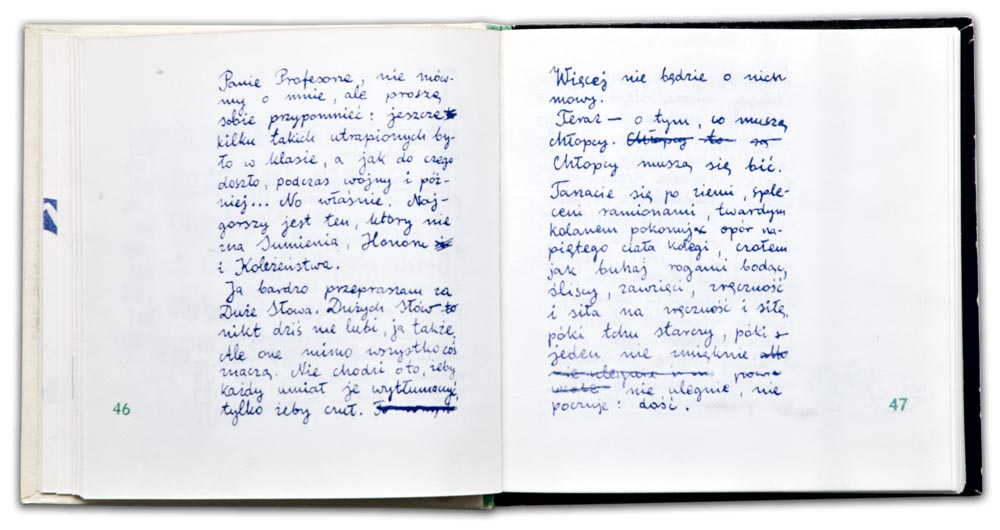 Panie Profesorze, nie mów-
my o mnie, ale proszę
sobie przypomnieć: jeszcze
kilku takich utrapionych by-
ło w klasie, a jak do czego
doszło, podczas wojny i póź-
niej... No właśnie. Naj-
gorszy jest ten, który nie
zna Sumienia, Honoru
i Koleżeństwa.
Ja bardzo przepraszam za
Duże Słowa. Dużych Słów to
nikt dziś nie lubi, ja także,
Ale one mimo wszystko coś
znaczą. Nie chodzi o to, żeby
każdy umiał je wytłumaczyć,
tylko żeby czuł.
46
Więcej nie będzie o nich
mowy.
Teraz — o tym, co muszą
chłopcy. Chłopcy to są
Chłopcy muszą się bić.
Tarzacie się po ziemi, sple-
ceni ramionami, twardym
kolanem pokonując opór na-
piętego ciała kolegi, czołem
jak buhaj rogami bodąc,
śliscy, zawzięci, zręczność
i siła na zręczność i siłę,
póki tchu starczy, póki
jeden nie zmięknie
nie ulegnie, nie
poczuje: dość.
47